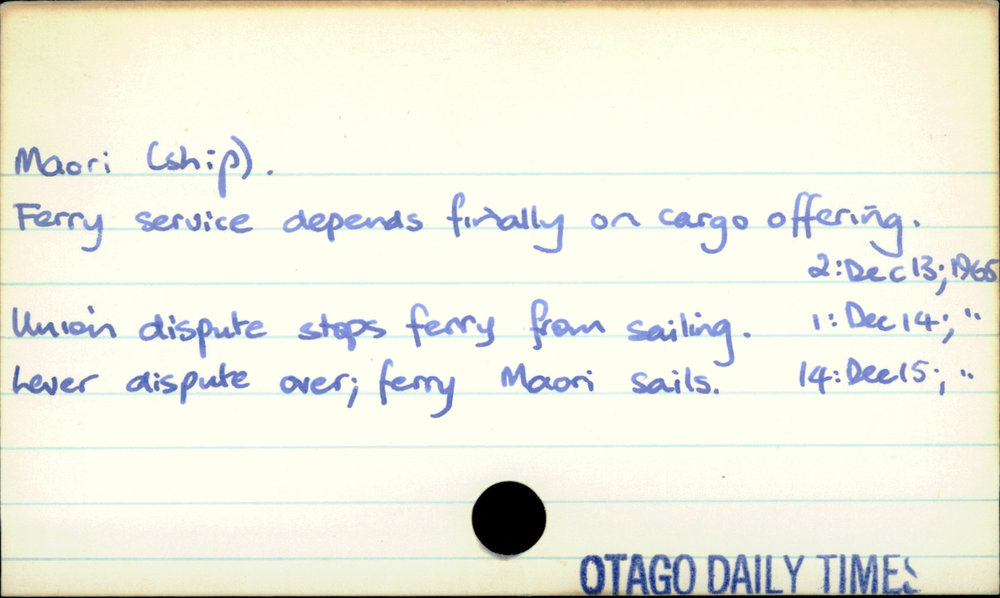 Maori (ship).
Ferry service depends finally on cargo offering.
2:Dec 13; 1965
Union dispute stops ferry from sailing. 1: Dec 14; "
Lever dispute over; ferry Maori sails. 14: Dec 15; "
OTAGO DAILY TIMES